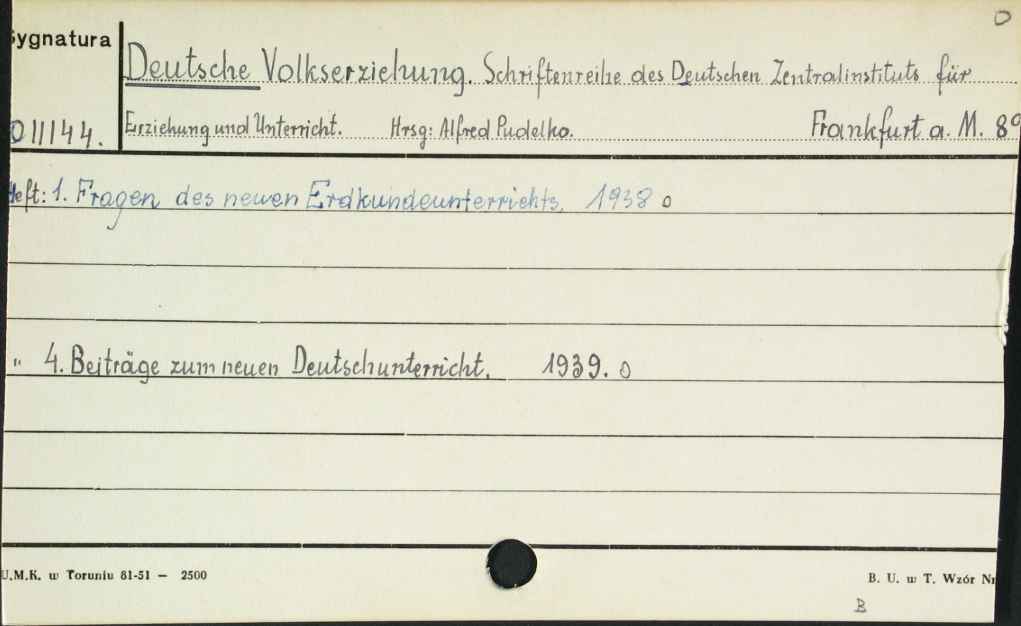 O
Sygnatura
Deutsche Volkserziehung. Schriftenreihe des Deutschen Zentralinstituts für
011144. Erziehung und Unterricht. Hrsg: Alfred Pudelko. Frankfurt a. M. 8°
Heft: 1. Fragen des neuen Erdkundeunterrichts. 1938 o
" 4. Beiträge zum neuen Deutschunterricht. 1939. o
U.M.K. w Toruniu 81-51 — 2500
B. U. w T. Wzór Nr
B